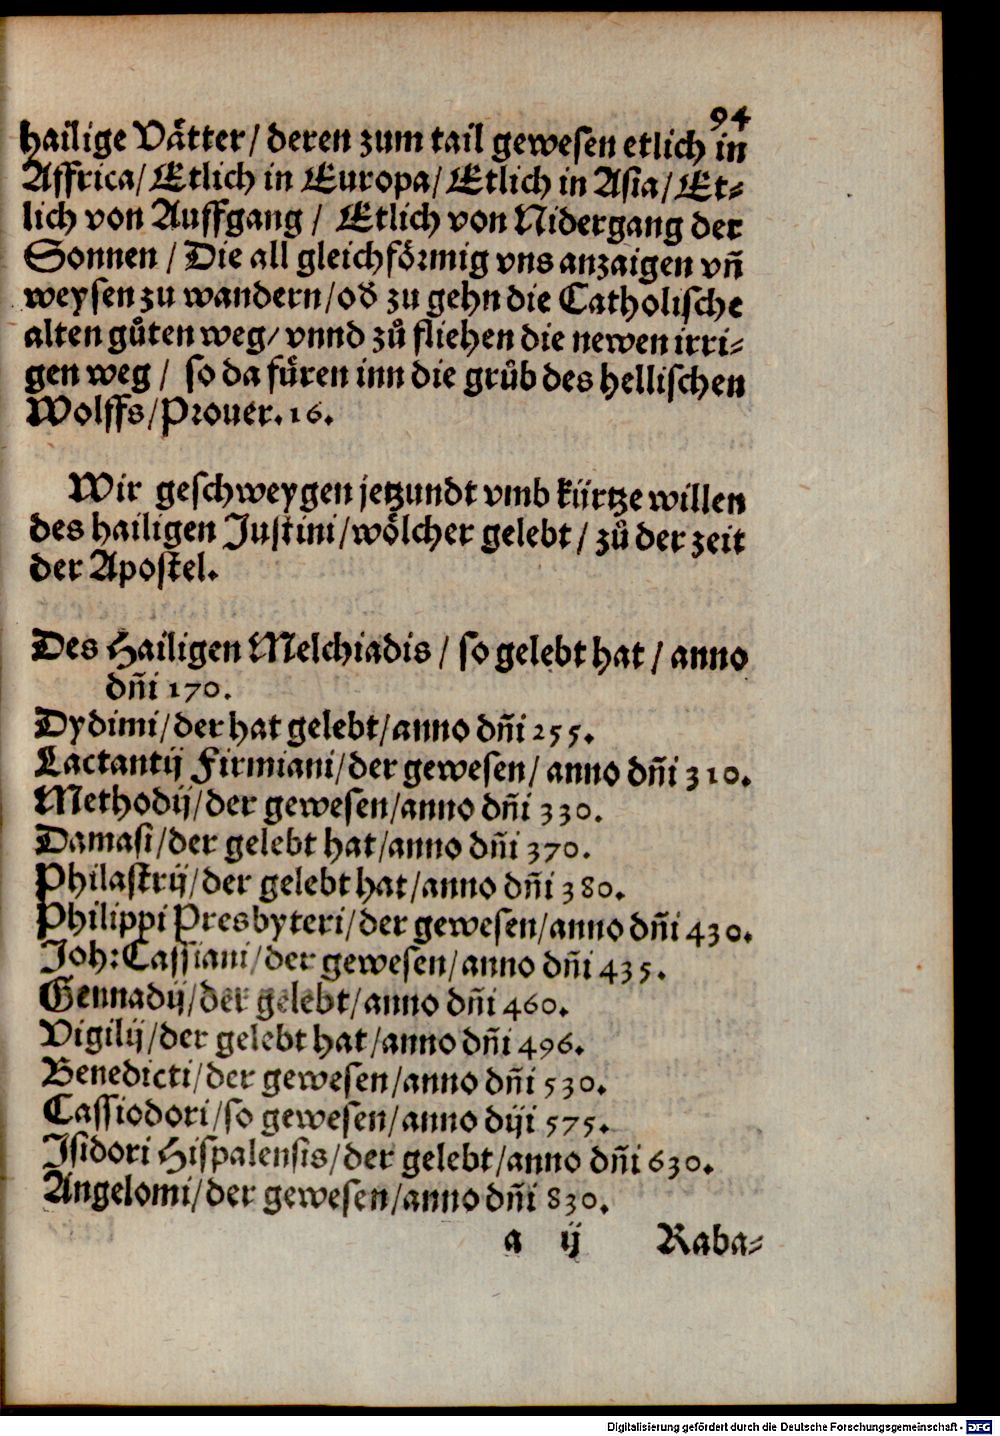 94
hailige Vaͤtter/ deren zum tail gewesen etlich in
Affrica/ Etlich in Europa/ Etlich in Asia/ Et⸗
lich von Auffgang / Etlich von Nidergang der
Sonnen / Die all gleichfoͤrmig vns anzaigen vñ
weysen zu wandern/ od zu gehn die Catholische
alten guͦten weg/ vnnd zuͦ fliehen die newen irri⸗
gen weg / so da fuͤren inn die gruͦb des hellischen
Wolffs/ Prouer. 16.
Wir geschweygen jetzundt vmb kürtze willen
des hailigen Justini/ woͤlcher gelebt / zuͦ der zeit
der Apostel.
Des Hailigen Melchiadis / so gelebt hat / anno
dñi 170.
Dydimi/ der hat gelebt/ anno dñi 255.
Lactantij Firmiani/ der gewesen/ anno dñi 310.
Methodij/ der gewesen/ anno dñi 330.
Damasi/ der gelebt hat/ anno dñi 370.
Philastrij/ der gelebt hat/ anno dñi 380.
Philippi Presbyteri/ der gewesen/ anno dñi 430.
Joh: Cassiani/ der gewesen/ anno dñi 435.
Gennadij/ der gelebt/ anno dñi 460.
Vigilij/ der gelebt hat/ anno dñi 496.
Benedicti/ der gewesen/ anno dñi 530.
Cassiodori/ so gewesen/ anno diji 575.
Isidori Hispalensis/ der gelebt/ anno dñi 630.
Angelomi/ der gewesen/ anno dñi 830.
a ij Raba⸗
Digitalisierung gefördert durch die Deutsche Forschungsgemeinschaft - DFG